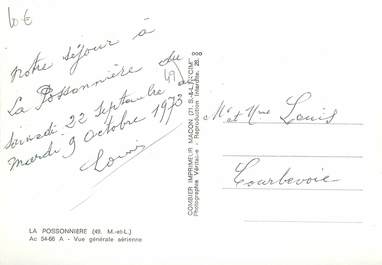 10€
notre séjour à
La Possonnière du
(49)
Samedi 22 Septembre au
mardi 9 octobre 1973
Louis
COMBIER IMPRIMEUR MACON (71. S.-&-L.) "CIM"
Photographie Véritable - Reproduction Interdite.
Mr et Mme Louis
Courbevoie
LA POSSONNIERE (49. M.-et-L.)
Ac 54-66 A - Vue générale aérienne